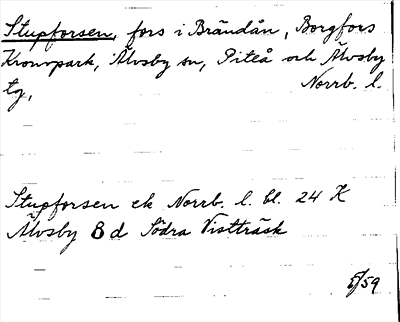 Stupforsen, fors i Brändån, Borgfors
Kronopark, Älvsby sn, Piteå och Älvsby
tg, Norrb. l.
Stupforsen ek Norrb. l. bl. 24 K
Älvsby 8 d Södra Vistträsk
5/59